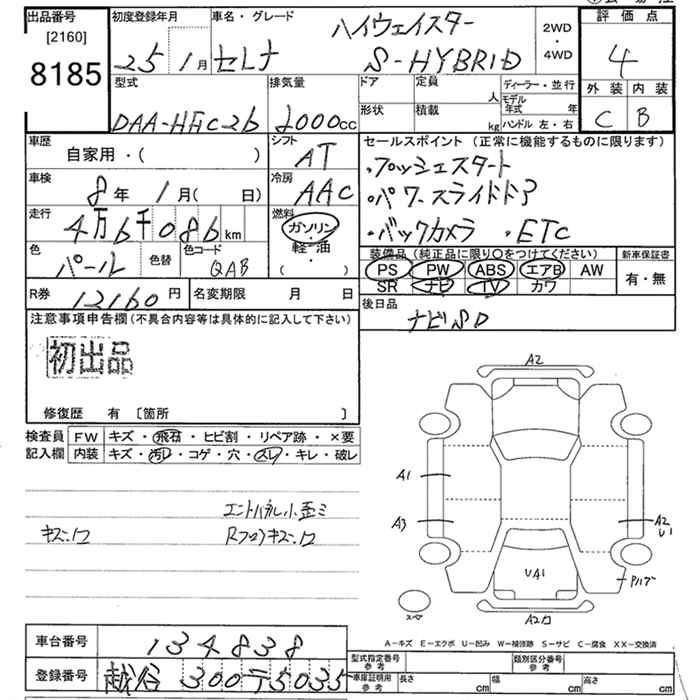 出品番号 初度登録年月 車名・グレード ハイウェイスター 2WD・4WD 評価点
[2160] 8185 25 1月 セレナ S-HYBRID 4
型式 排気量 ドア 定員 人 ディーラー・並行 外装 内装
DAA-HFC26 2000cc 形状 積載 kg モデル年式 年 ハンドル 左・右 C B
車歴 シフト セールスポイント (正常に機能するものに限ります)
自家用・( ) AT ・プッシュスタート
車検 8年 1月( 日) 冷房 AAC ・パワースライドドア
走行 4万6千086km 燃料 ガソリン・軽・油 ( ) ・バックカメラ ・ETC
色 パール 色替 色コード QAB 装備品 (純正品に限り〇をつけてください) 新車保証書
PS PW ABS エアB AW 有・無
SR ナビ TV カワ
R券 12160円 名変期限 月 日 後日品
ナビSD
注意事項申告欄 (不具合内容等は具体的に記入して下さい)
初出品
修復歴 有 [箇所 ]
検査員 FW キズ・飛石・ヒビ割・リペア跡・×要
記入欄 内装 キズ・汚レ・コゲ・穴・スレ・キレ・破レ
A2
A1
A3
A2
U1
UA1
A2
エントパネル小歪ミ
キズ、ワ Rフロアキズ、ワ
A-キズ E-エクボ U-凹み W-補修跡 S-サビ C-腐食 XX-交換済
車台番号 134838
登録番号 越谷 300 テ5035
型式指定番号 参考 類別区分番号 参考
車庫証明用 参考 長さ cm 幅 cm 高さ cm